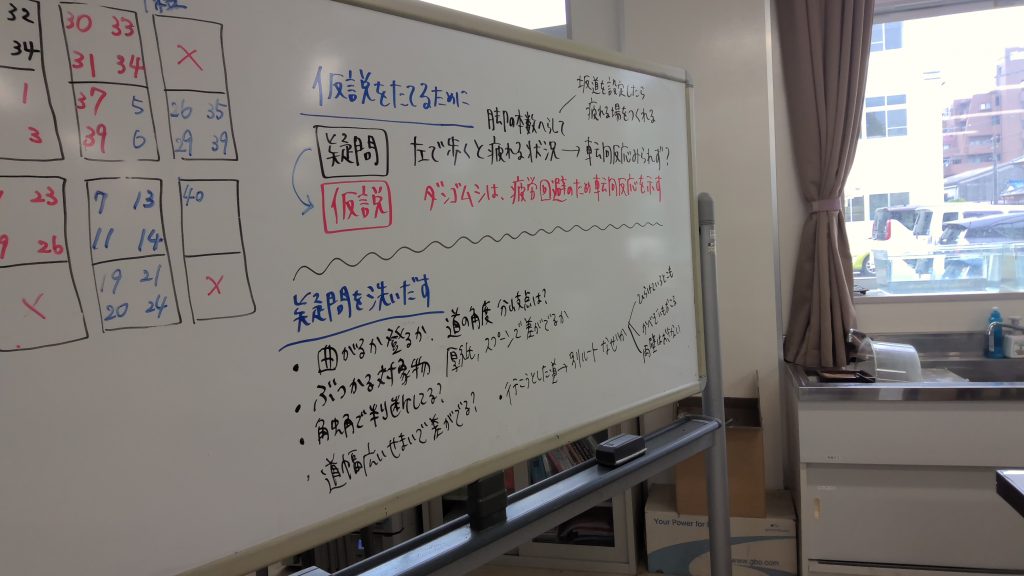 32
34
1
3
30 33
31 34
37 5
39 6
×
26 35
29 39
23
26
×
7 13
11 14
19 21
20 24
40
×
仮説をたてるために
坂道を設定したら
疲れる場をつくれる
脚の本数へらして
疑問
左で歩くと疲れる状況→転向反応みられず?
仮説
ダンゴムシは、疲労回避のため転向反応を示す
疑問を洗いだす
・曲がるか登るか、道の角度 分岐点は?
・ぶつかる対象物
で差がでるか
・触角で判断してる?
・道幅広いせまいで差がでる?
・行こうとした道→別ルート なぜいか
Your Power for
www.gbo.com